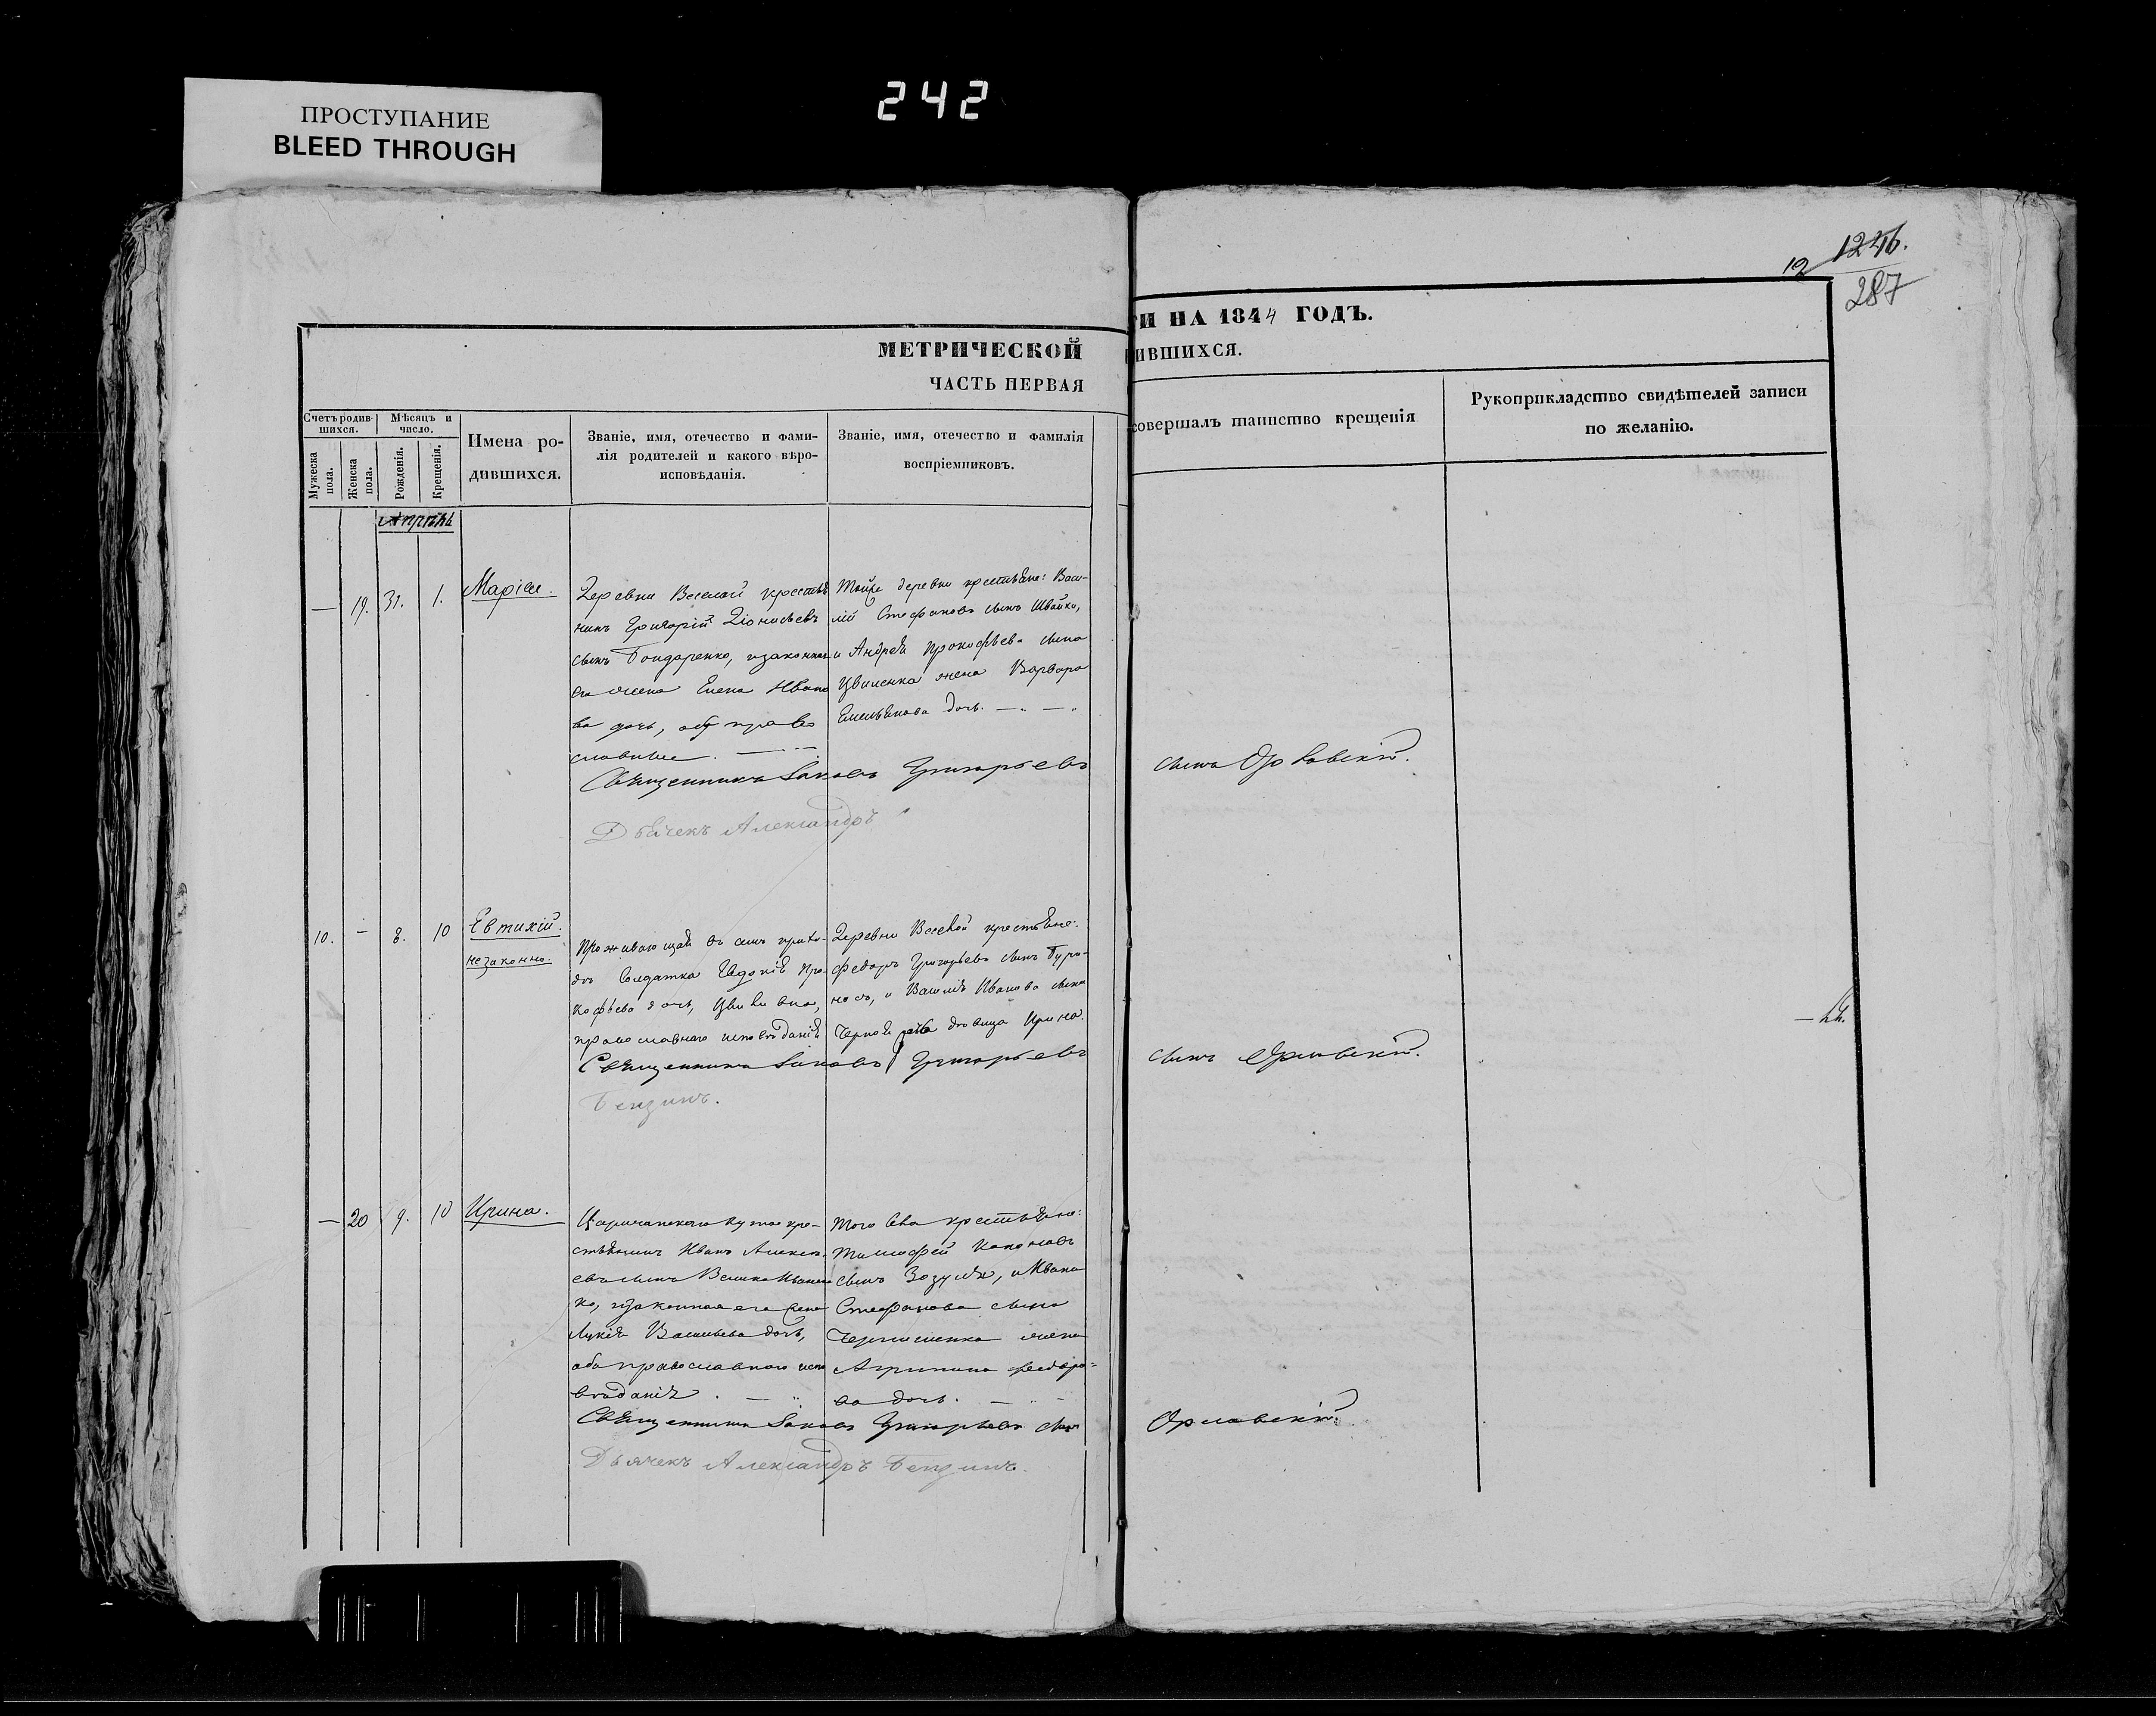 242
ПРОСТУПАНИЕ
BLEED THROUGH
1246.
12
287
МЕТРИЧЕСКОЙ
ТИ НА 1844 ГОДЪ.
ЧАСТЬ ПЕРВАЯ
ИВШИХСЯ.
Счетъ родив-
шихся.
Мужеска пола.
Женска пола.
Мѣсяцъ и
число.
Рожденія.
Крещенія.
Имена ро-
дившихся.
Званіе, имя, отечество и фами-
лія родителей и какого вѣро-
исповѣданія.
Званіе, имя, отечество и фамилія
воспріемниковъ.
совершалъ таинство крещенія
Рукоприкладство свидѣтелей записи
по желанію.
Апрѣль
— 19. 31. 1. Марія.
Деревни Веселой крестья
нинъ Григорій Діонисьевъ
сынъ Бондаренко, и законная
его жена Елена Ивано
ва дочь, оба право
славные.
Тойже деревни крестьяне: Васи-
лій Стефановъ сынъ Швайка,
и Андрея Прокофьева сына
Цвиленка жена Варвара
Емельянова дочь.
Священникъ Іаковъ Григорьевъ
сынъ Орловскій.
Дьячекъ Александръ
10. — 8. 10 Евтихій.
незаконно.
Проживающей въ семъ прихо-
дѣ Солдатки Евдокія Про-
кофьева дочь,
православнаго исповѣданія
Деревни Веселой крестьяне:
Федоръ Григорьевъ сынъ Буро-
носъ, и Василія Иванова сына
вдовица Ирина.
Священникъ Іаковъ Григорьевъ
сынъ Орловскій.
Бензинъ.
— 20 9. 10 Ирина.
Царичанского кута кре-
стьянинъ Иванъ Алексѣ-
евъ сынъ Великоиванен
ко, и законная его жена
Лукія Васильева дочь,
оба православнаго испо
вѣданія.
Того же крестьяне:
Тимофей Кононовъ
сынъ Зозуля, и Ивана
Стефанова сына
жена
Агрипина Федоро-
ва дочь.
Священникъ Іаковъ Григорьевъ сынъ
Орловскій.
Дьячекъ Александръ Бензинъ.